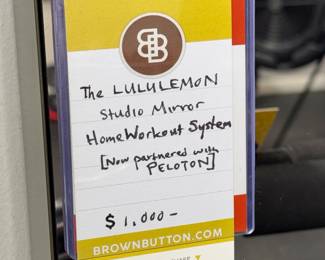 BB
The LULULEMON
Studio Mirror
Home Workout System
[Now partnered with
PELOTON]
$1,000-
BROWNBUTTON.COM